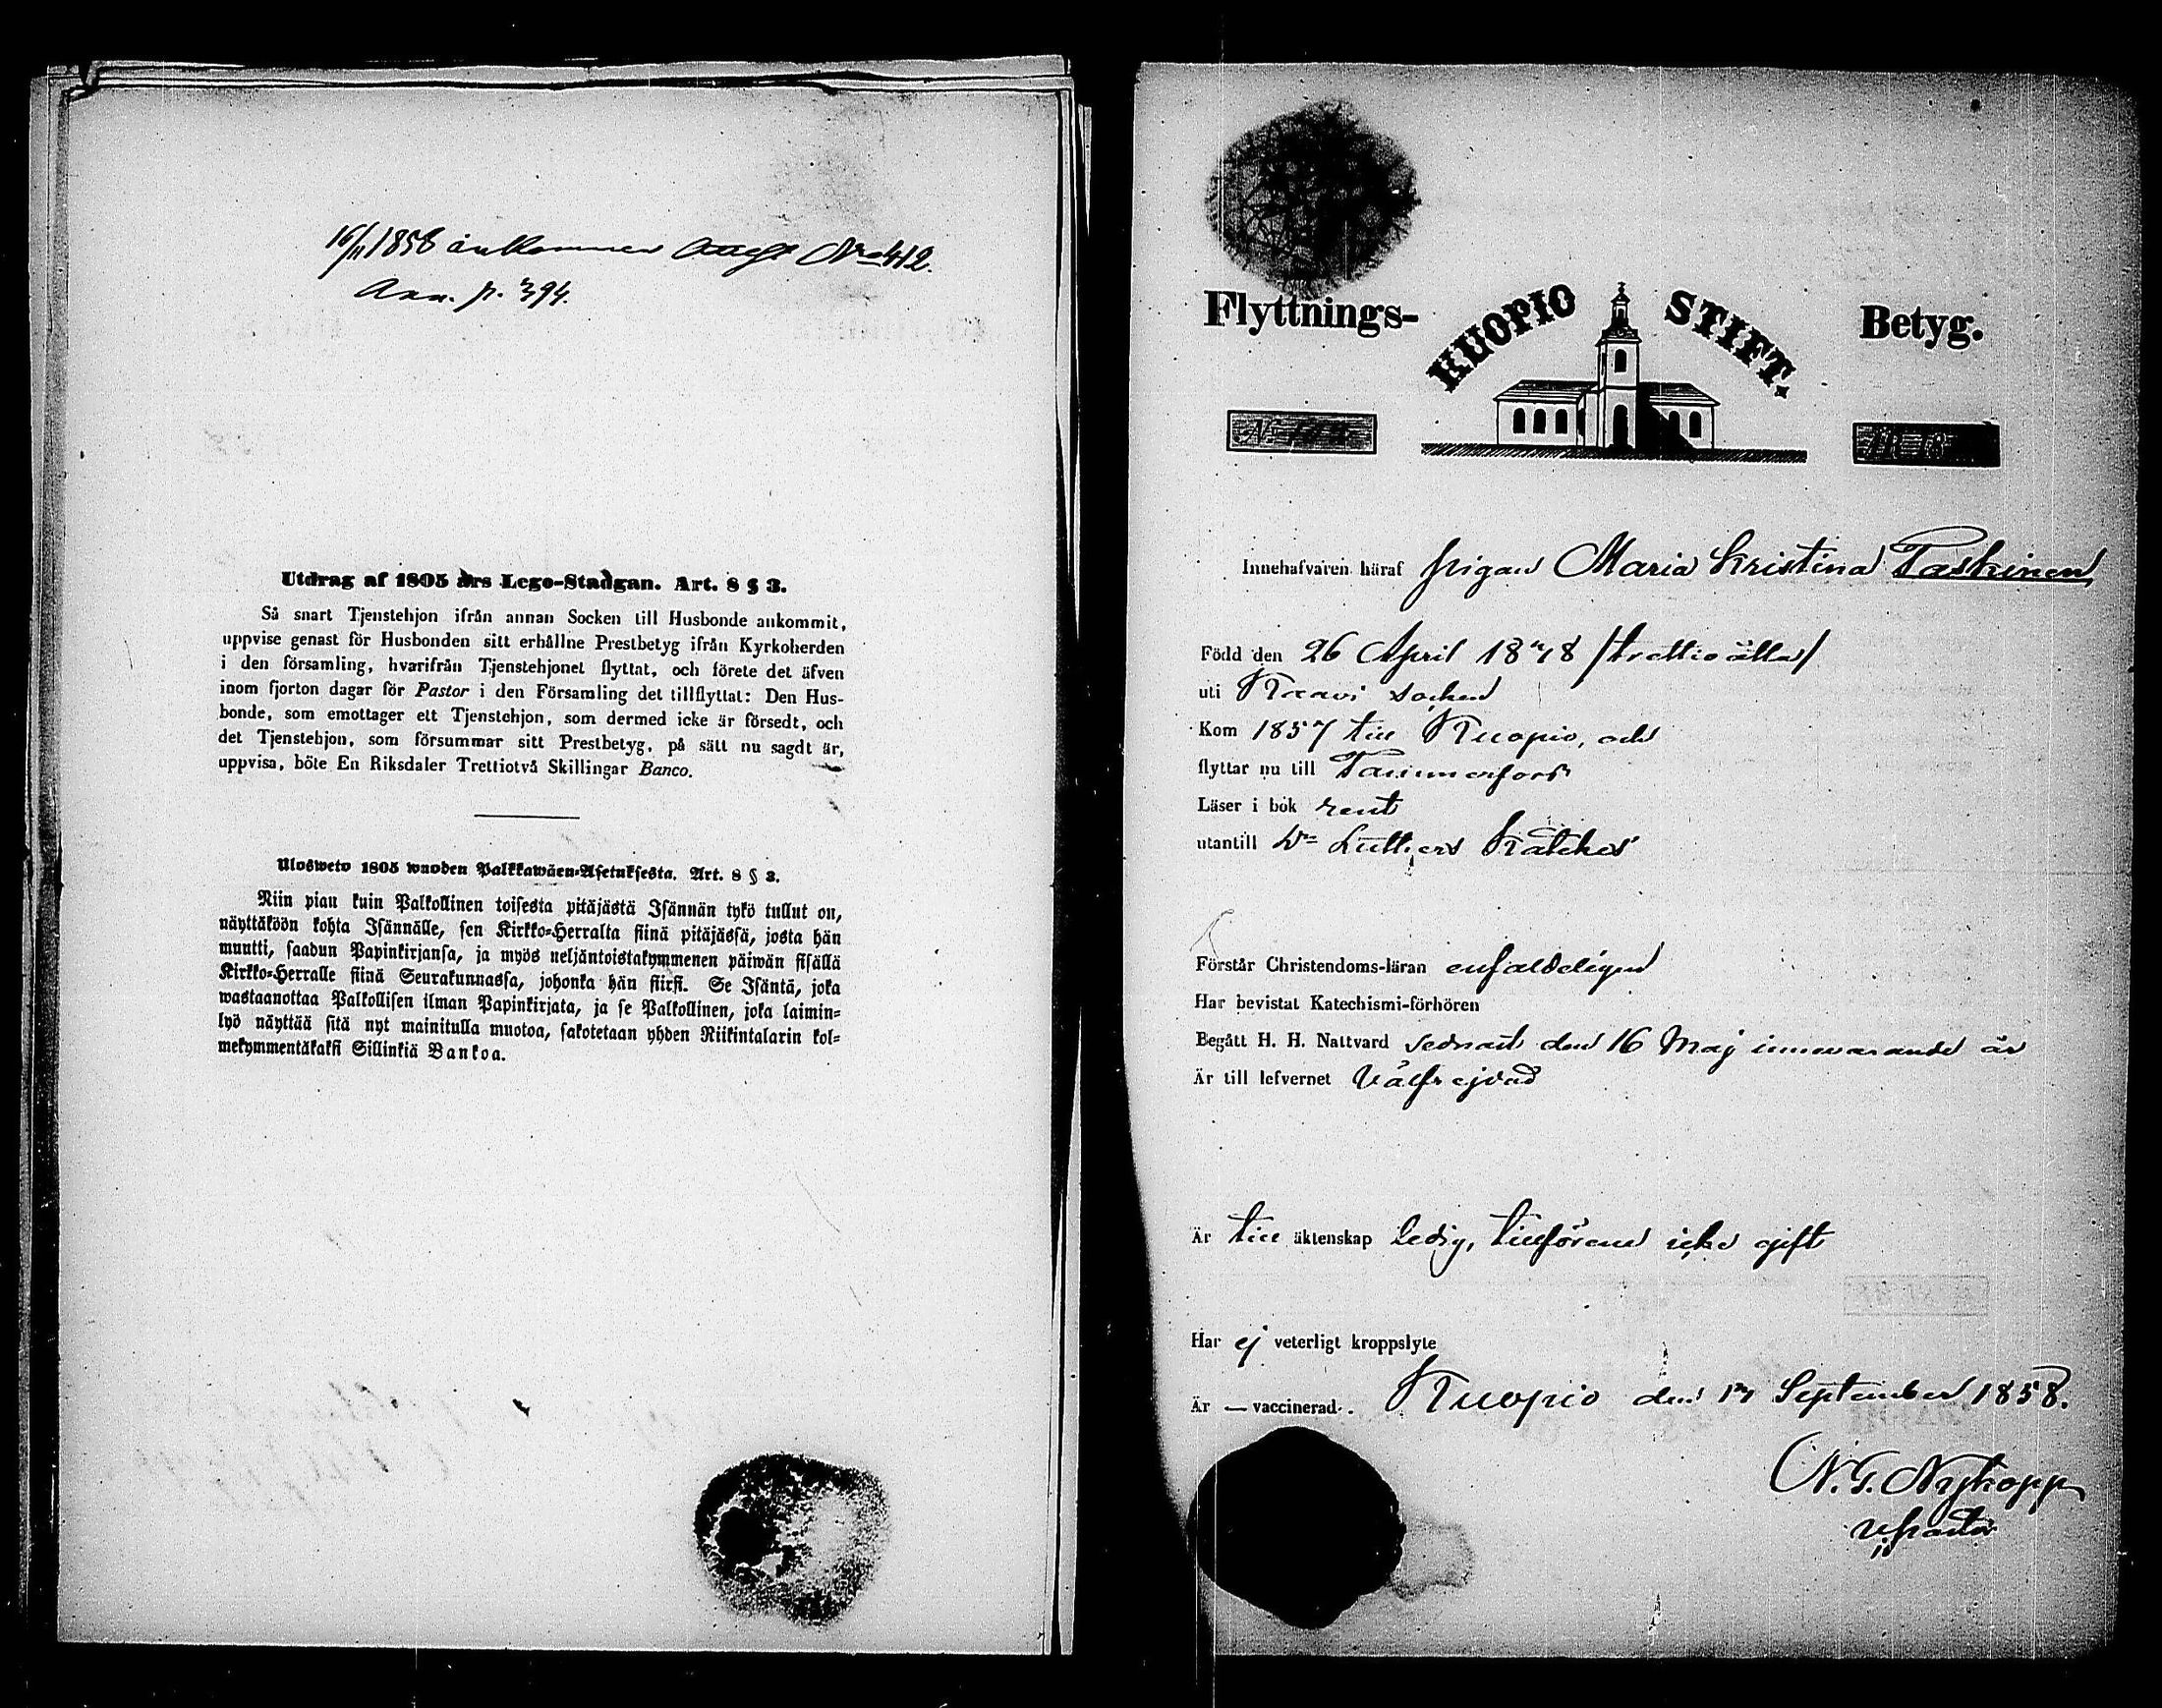 16/11 1858 ankommen attest No 412.
Ann. p. 394.
Utdrag af 1805 års Lego-Stadgan. Art. 8 § 3.
Så snart Tjenstehjon ifrån annan Socken till Husbonde ankommit,
uppvise genast för Husbonden sitt erhållne Prestbetyg ifrån Kyrkoherden
i den församling, hvarifrån Tjenstehjonet flyttat, och förete det äfven
inom fjorton dagar för Pastor i den Församling det tillflyttat: Den Hus-
bonde, som emottager ett Tjenstehjon, som dermed icke är försedt, och
det Tjenstehjon, som försummar sitt Prestbetyg, på sätt nu sagdt är,
uppvisa, böte En Riksdaler Trettiotvå Skillingar Banco.
Ulosweto 1805 wuoden Palkkawäen-Asetuksesta. Art. 8 § 3.
Niin pian kuin Palkollinen toisesta pitäjästä Isännän tykö tullut on,
näyttäköön kohta Isännälle, sen Kirkko-Herralta siinä pitäjässä, josta hän
muutti, saadun Papinkirjansa, ja myös neljäntoistakymmenen päiwän sisällä
Kirkko-Herralle siinä Seurakunnassa, johonka hän siirsi. Se Isäntä, joka
wastaanottaa Palkollisen ilman Papinkirjata, ja se Palkollinen, joka laimin-
lyö näyttää sitä nyt mainitulla muotoa, sakotetaan yhden Riikintalarin kol-
mekymmentäkaksi Sillinkiä Bankoa.
Flyttnings- KUOPIO STIFT. Betyg.
No
Innehafvaren häraf pigan Maria Kristina Taskinen
Född den 26 April 1848 /trettioåtta/
uti Kaavi socken
Kom 1857 till Kuopio, och
flyttar nu till Tammerfors
Läser i bok rent
utantill Dr Luthers Kateches
Förstår Christendoms-läran enfaldeligen
Har bevistat Katechismi-förhören
Begått H. H. Nattvard sednast den 16 Maj innevarande år
Är till lefvernet välfrejdad
Är till äktenskap ledig, tillförene icke gift
Har ej veterligt kroppslyte
Är — vaccinerad. Kuopio den 17 September 1858.
N. G. Nykopp